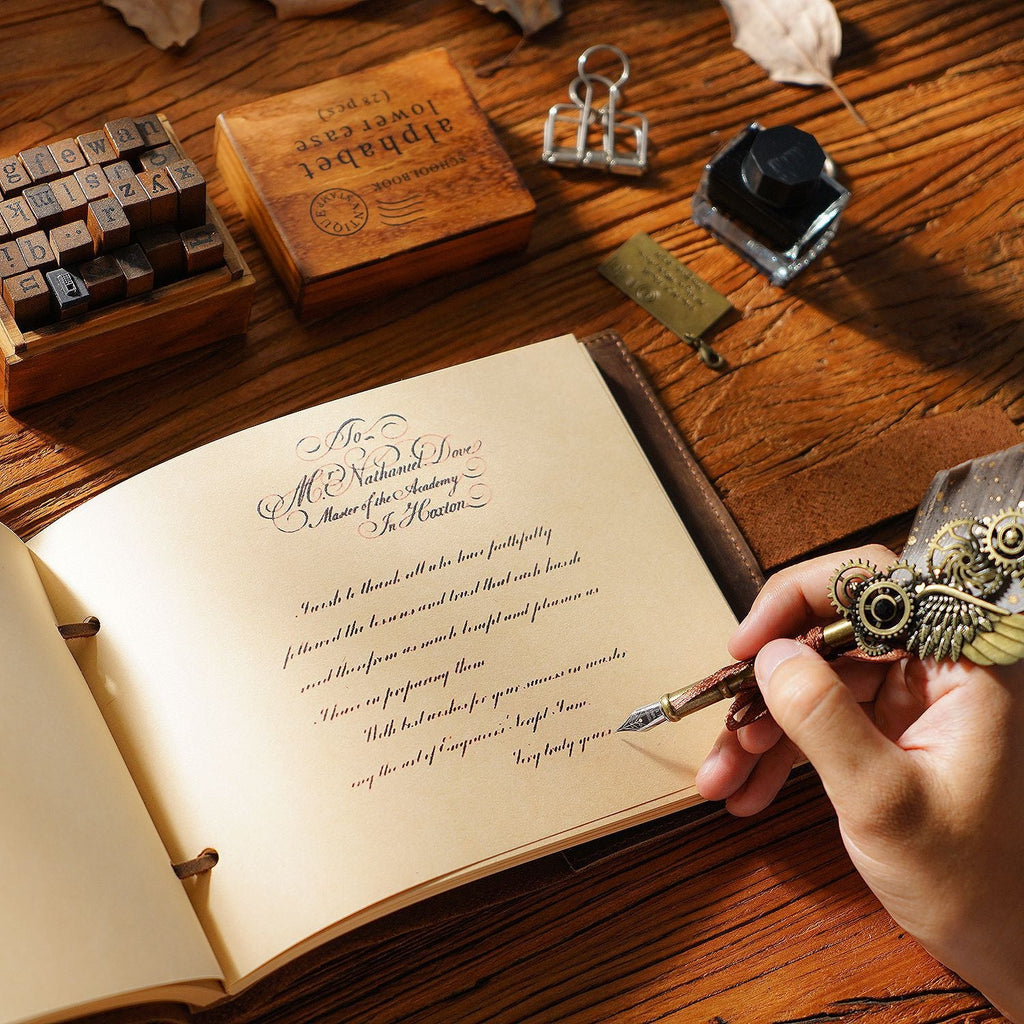 To
Mr. Nathaniel Dove
Master of the Academy
In Hoxton
I wish to thank all who have faithfully
followed the lessons and trust that each has de
rived therefrom as much benefit and pleasure as
I have in preparing them
With best wishes for your success in master
ing the art of Engrossers' Script I am.
Very truly yours
alphabet
lower case
(28 pcs)
SCHOOLBOOK
g f e w a n